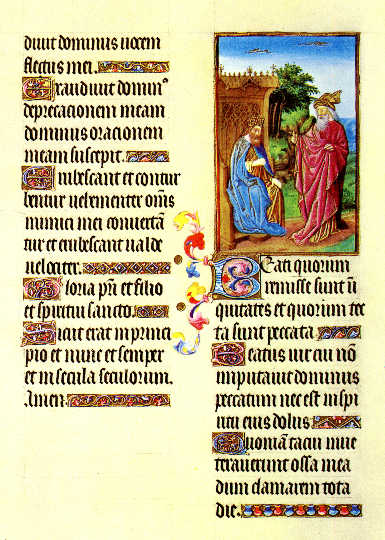 diuit dominus uocem
fletus mei.
Exaudiuit domin⁹
deprecacionem meam
dominus oracionem
meam suscepit.
Erubescant et contur
bentur uehementer om̄s
inimici mei conuertā
tur et erubescant ualde
uelociter.
Gloria pr̄i et filio
et spiritui sancto.
Sicut erat in princi
pio et nunc et semper
et in secula seculorum.
Amen
Beati quorum
remisse sunt ī
quitates et quorum tec
ta sunt peccata
Beatus uir cui nō
imputauit dominus
peccatum nec est in spi
ritu eius dolus
Quoniā tacui inue
terauerunt ossa mea
dum clamarem tota
die.